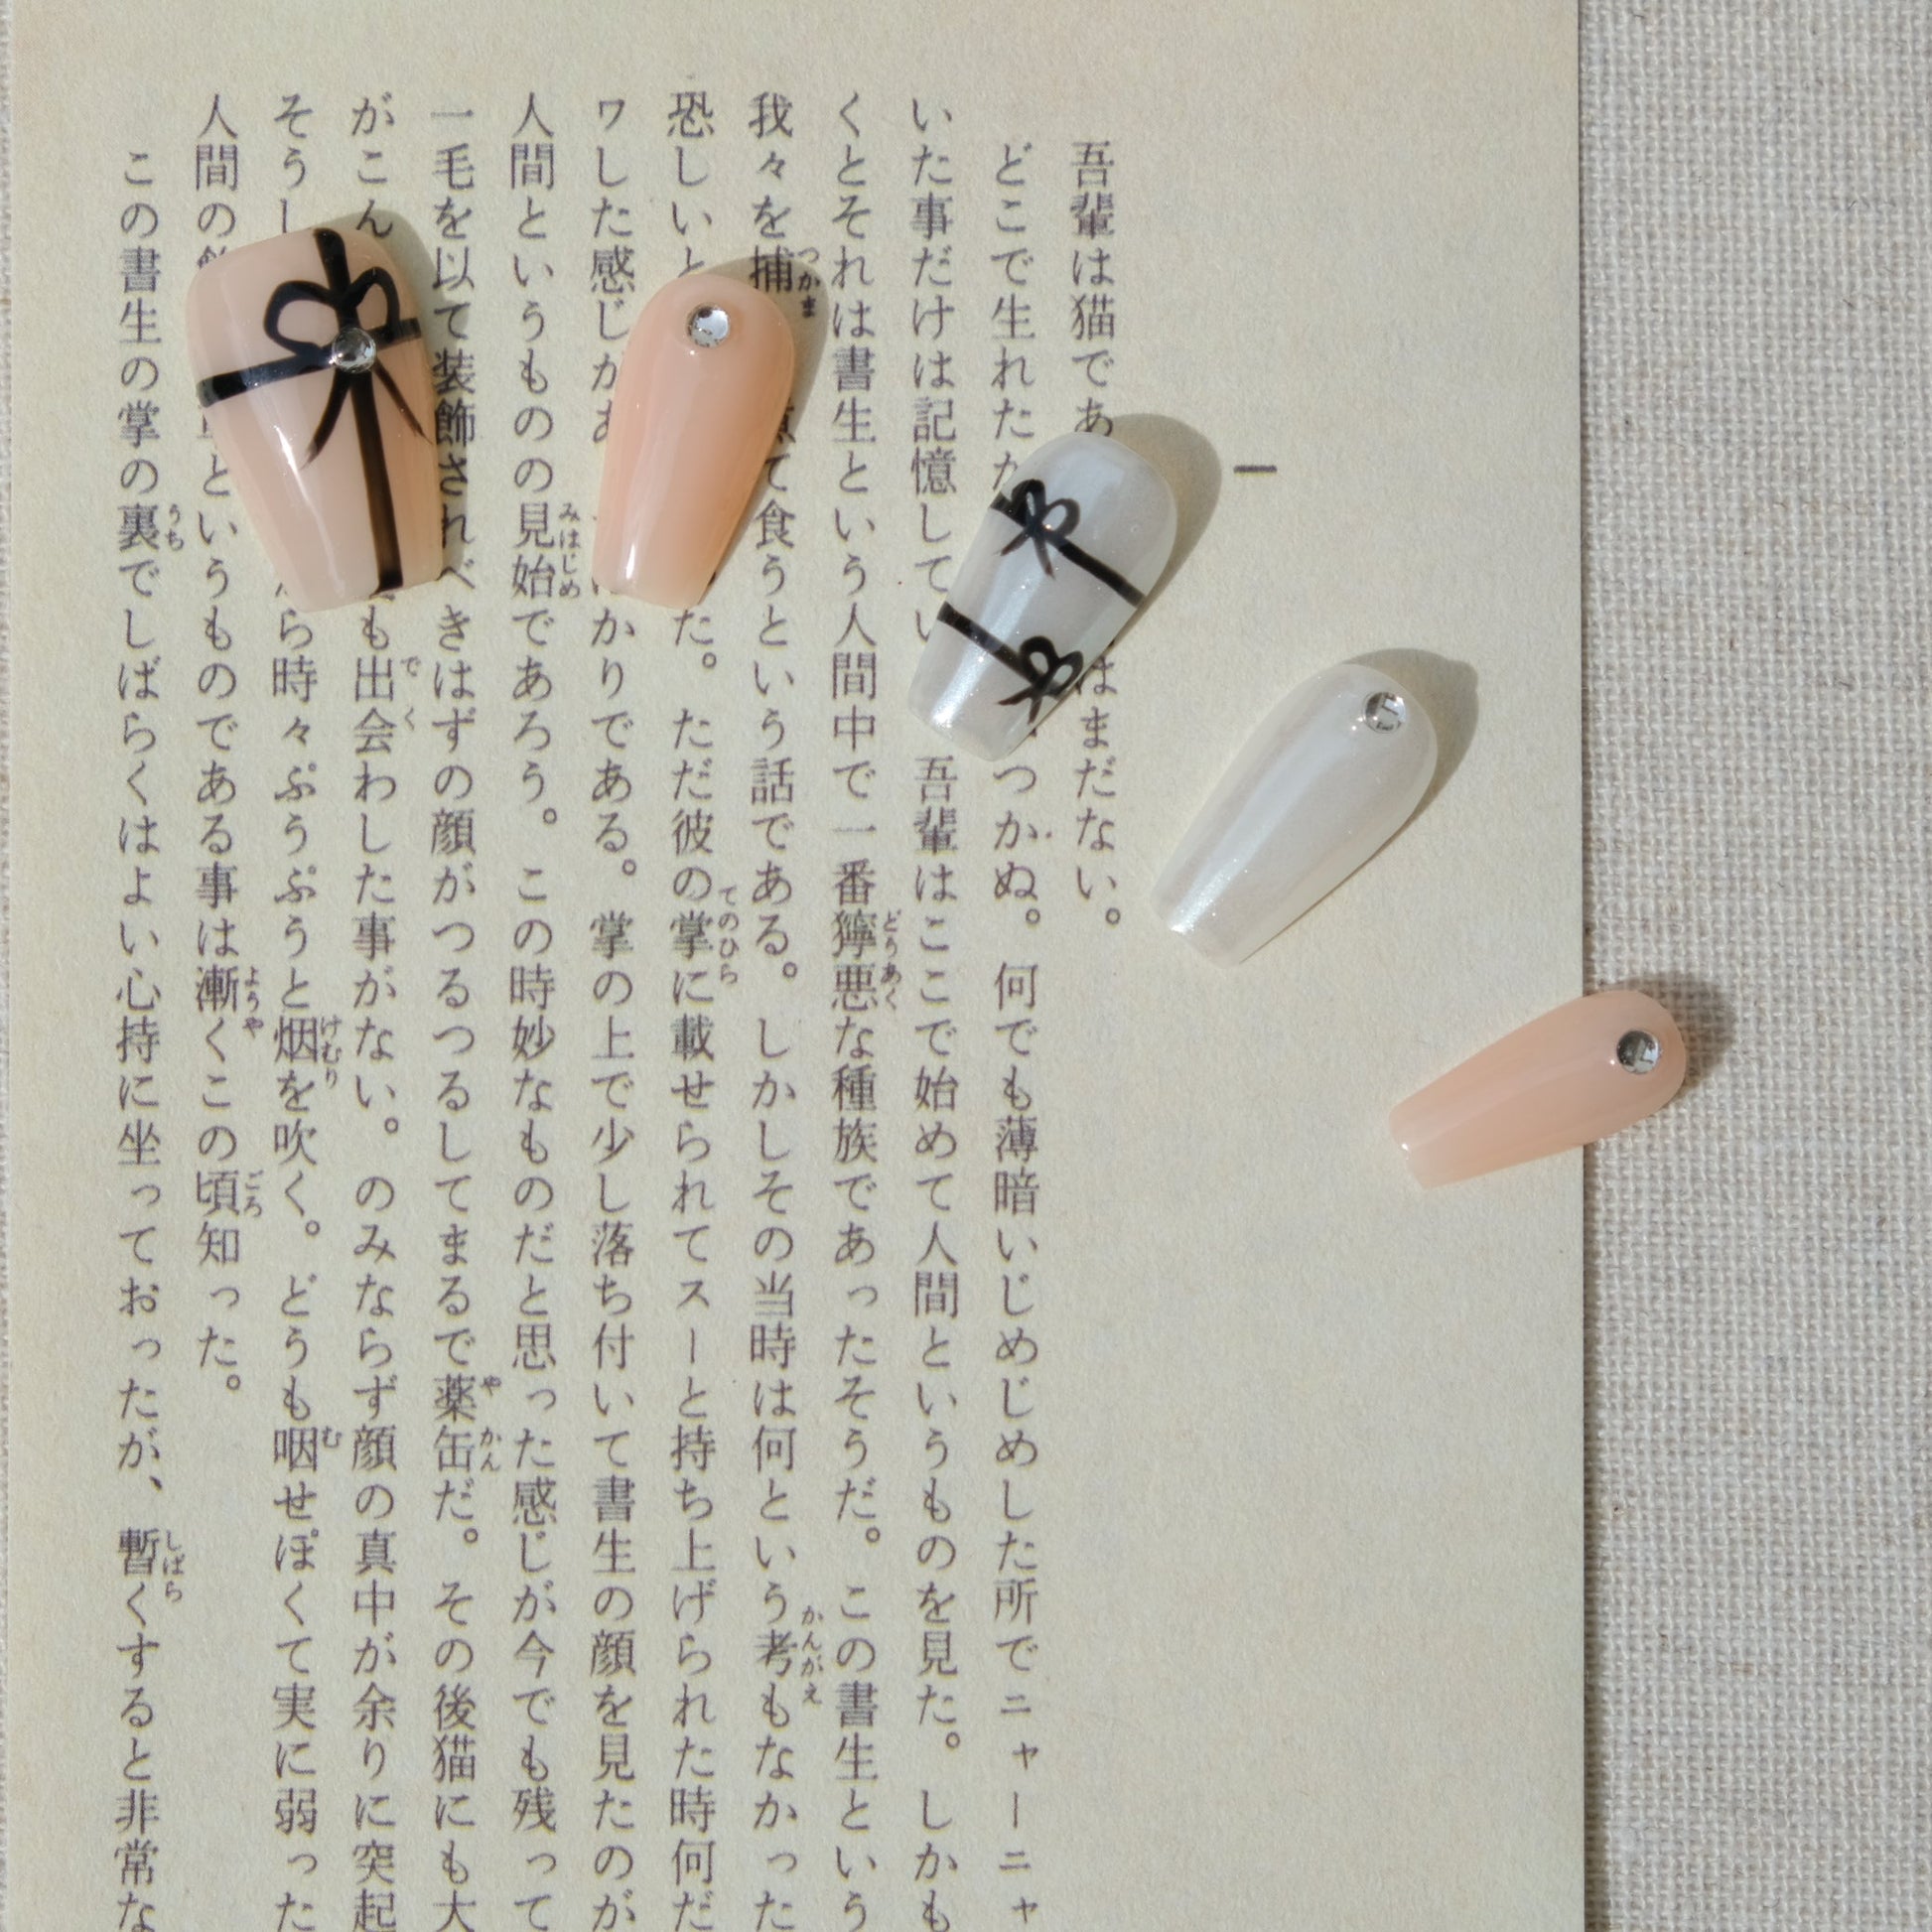 一
吾輩は猫であ はまだない。
どこで生れた つかぬ。何でも薄暗いじめじめした所でニャーニャ
いた事だけは記憶してい 吾輩はここで始めて人間というものを見た。しかも
くとそれは書生という人間中で一番獰悪な種族であったそうだ。この書生という
どうあく
我々を捕 て食うという話である。しかしその当時は何という考もなかった
つかま
かんがえ
恐しいと た。ただ彼の掌に載せられてスーと持ち上げられた時何だ
てのひら
ワした感じがあ かりである。掌の上で少し落ち付いて書生の顔を見たのが
人間というものの見始であろう。この時妙なものだと思った感じが今でも残って
みはじめ
一毛を以て装飾されべきはずの顔がつるつるしてまるで薬缶だ。その後猫にも大
やかん
がこん も出会わした事がない。のみならず顔の真中が余りに突起
でく
そうし ら時々ぷうぷうと烟を吹く。どうも咽せぽくて実に弱った
けむり
む
人間の というものである事は漸くこの頃知った。
ようや
ごろ
この書生の掌の裏でしばらくはよい心持に坐っておったが、暫くすると非常な
うち
しばら